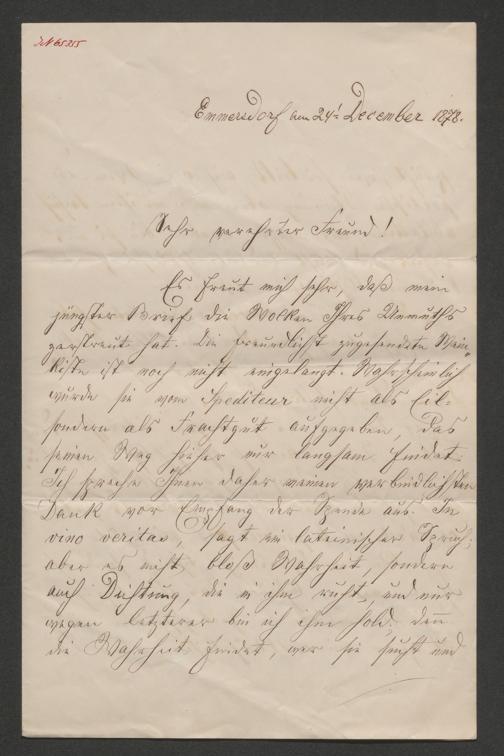 IN 65255
Emmersdorf am 24t December 1878.
Sehr verehrter Freund!
Es freut mich sehr, daß mein
jüngster Brief die Wolken Ihres Unmuths
zerstreut hat. Die freundlichst zugesendete Wein-
kiste ist noch nicht eingelangt. Wahrscheinlich
wurde sie vom Spediteur nicht als Eil-
sondern als Frachtgut aufgegeben, das
seinen Weg hieher nur langsam findet.
Ich spreche Ihnen daher meinen verbindlichsten
Dank vor Empfang der Spende aus. In
vino veritas, sagt ein lateinischer Spruch;
aber es nicht bloß Wahrheit, sondern
auch Dichtung, die in ihm ruht, und nur
wegen letzterer bin ich ihm hold; denn
die Wahrheit findet, wer sie sucht und